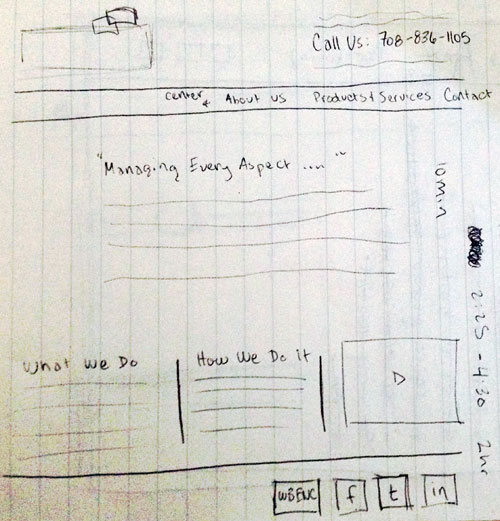 Call Us: 708-836-1105
center & About us Products & Services Contact
"Managing Every Aspect .... "
10 min
2:25 - 4:30 2hr
What We Do How We Do it
D
WBENC f t in